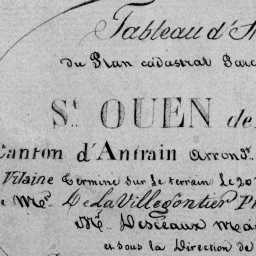 Tableau d'A
du Plan cadastral Parc
St. OUEN de
Canton d'Antrain Arron.
Vilaine Terminé sur le terrain le 20
Mr. De La Villegontier P
Mr. Deseaux Ma
et sous la Direction de